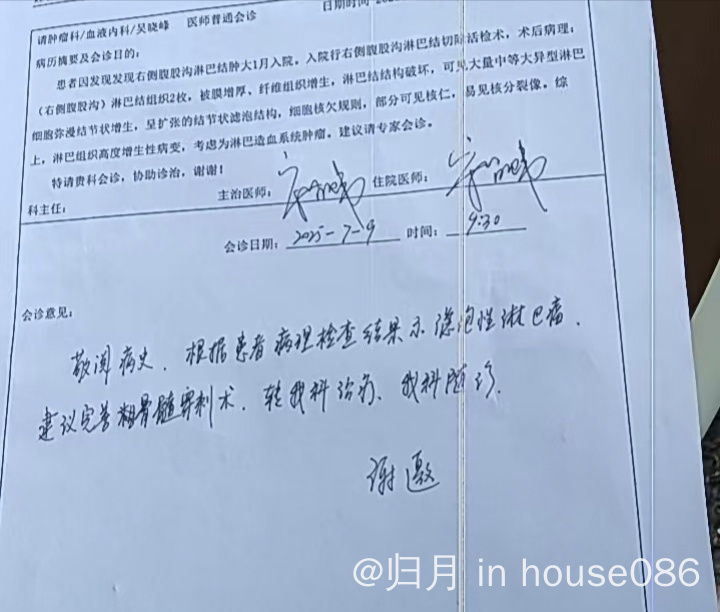 日期时间
请肿瘤科/血液内科/吴晓峰 医师普通会诊
病历摘要及会诊目的：
患者因发现发现右侧腹股沟淋巴结肿大1月入院，入院行右侧腹股沟淋巴结切除活检术，术后病理：
（右侧腹股沟）淋巴结组织2枚，被膜增厚、纤维组织增生，淋巴结结构破坏，可见大量中等大异型淋巴
细胞弥漫结节状增生，呈扩张的结节状滤泡结构，细胞核欠规则，部分可见核仁，易见核分裂像，综
上，淋巴组织高度增生性病变，考虑为淋巴造血系统肿瘤，建议请专家会诊。
特请贵科会诊，协助诊治，谢谢！
科主任： 主治医师： 住院医师：
会诊日期：2025-7-9 时间：9:30
会诊意见：
敬阅病史，根据患者病理检查结果示滤泡性淋巴瘤，
建议完善骨髓穿刺术，转我科治疗、我科随诊。
谢邀
@归月 in house086